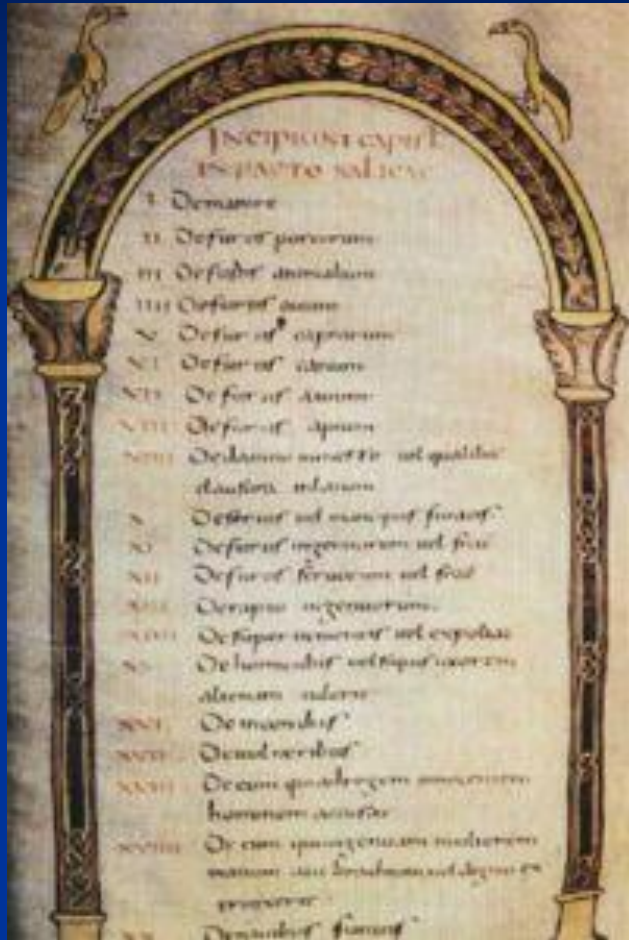 INCIPIUNT CAPIT
IN PACTO SALICAE
I De mannire
II De furtis porcorum
III De furtis animalium
IIII De furtis ouium
V De furtis caprarum
VI De furtis canum
VII De furtis auium
VIII De furtis apium
VIIII De damno uel qualibet
clausura
X De seruis uel mancipiis furatis
XI De furtis ingenuorum uel frac
XII De furtis seruorum uel frac
XIII De rapto ingenuorum
XIIII De superuenientis uel expoliac
XV De homicidiis uel si quis uxorem
alienam tulerit
XVI De incendiis
XVII De uulneribus
XVIII De eum qui ad regem innocentem
hominem accusat
XVIIII De eum qui ingenuam mulierem
manum aut brachium uel digitum ex
XX De nauibus furatis